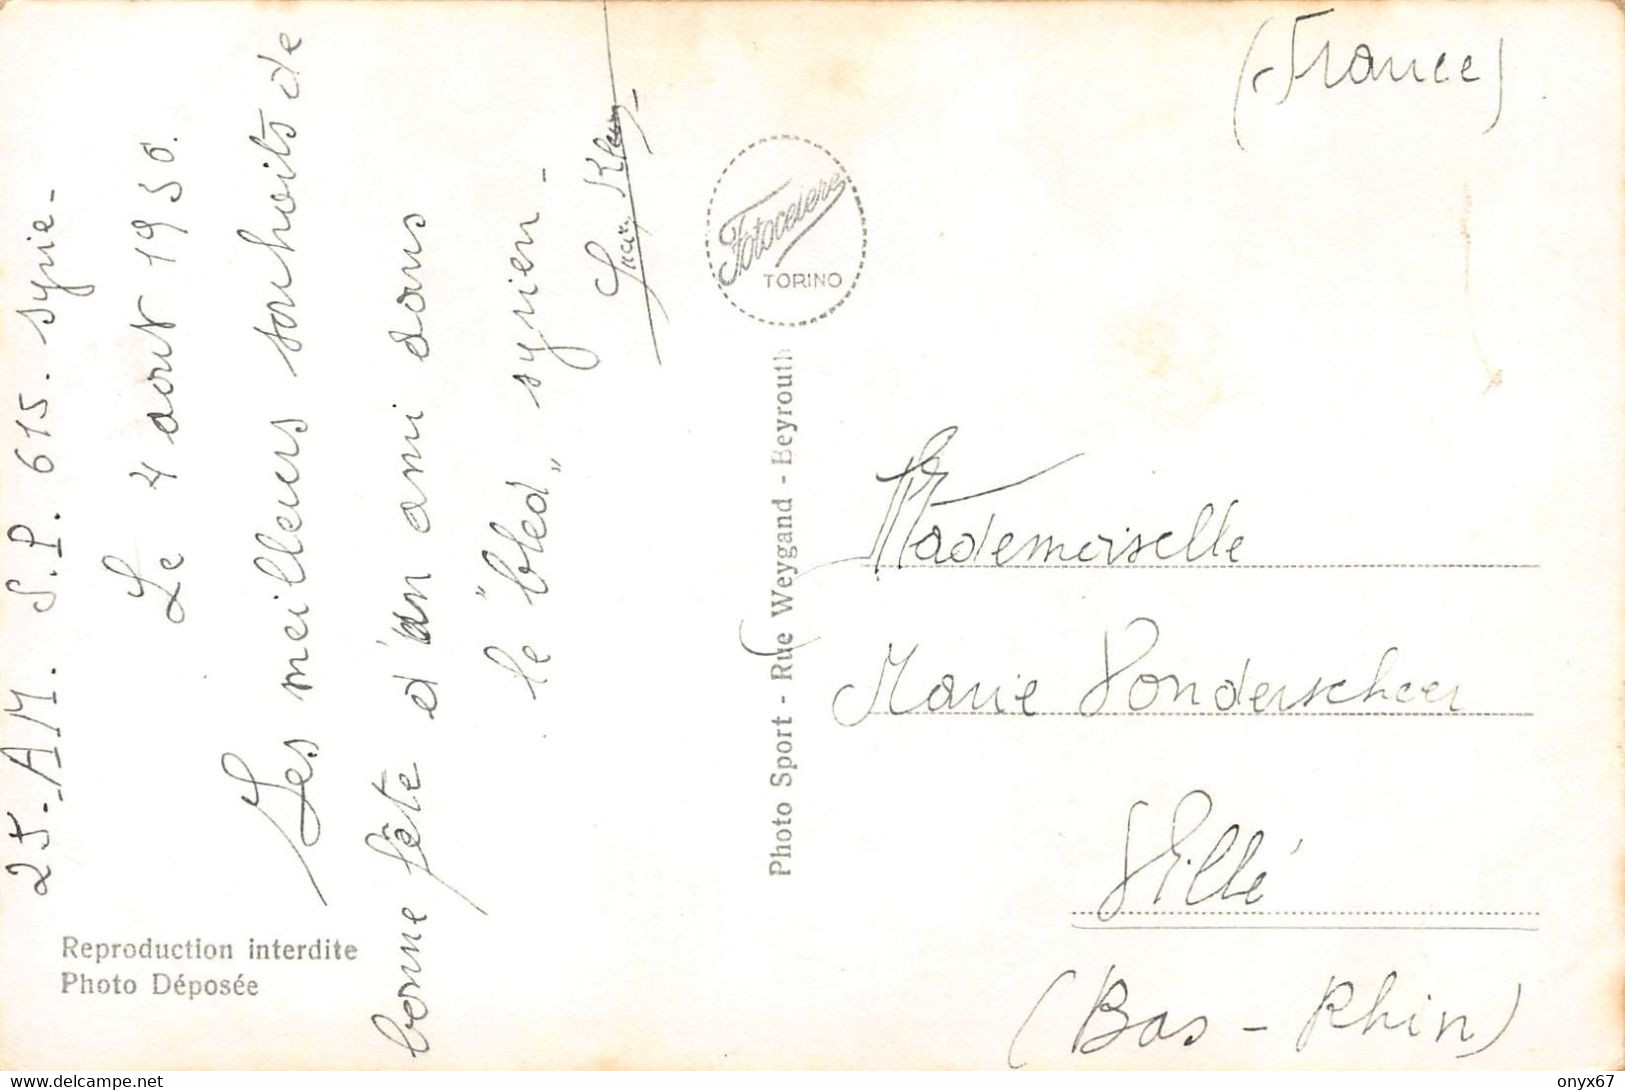 25. A.M. S.P. 615. Syrie-
Le 4 aout 1930.
Les meilleurs souhaits de
bonne fête d'un ami dans
le "bled" syrien -
Photo Sport - Rue Weygand - Beyrouth
Fotocelere
TORINO
(France)
Mademoiselle
Marie Vonderscheer
Villé
(Bas-Rhin)
Reproduction interdite
Photo Déposée
delcampe.net
onyx67